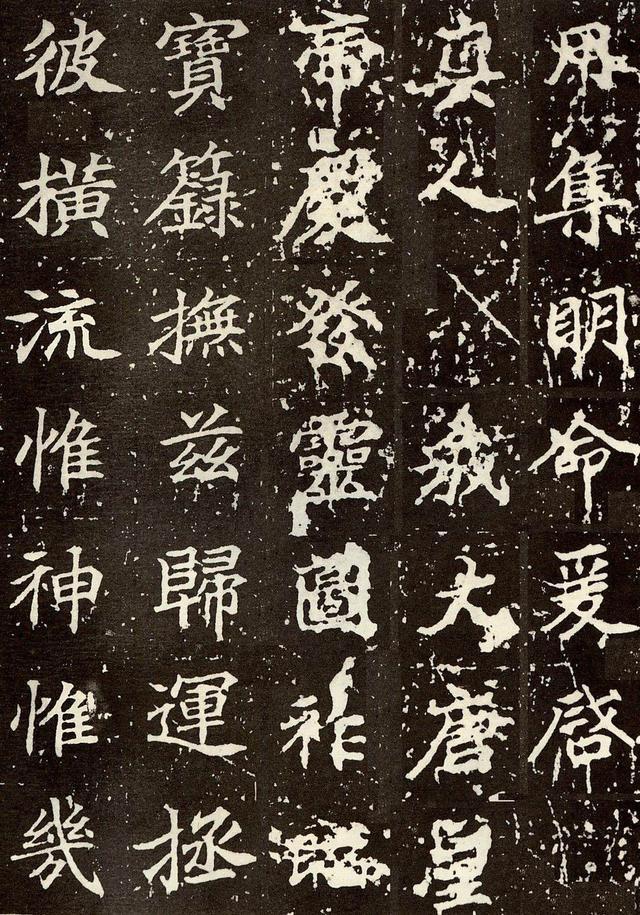 用集明命爰啓
真人我大唐皇
帝厥發靈圖祚
寶籙撫茲歸運拯
彼橫流惟神惟幾